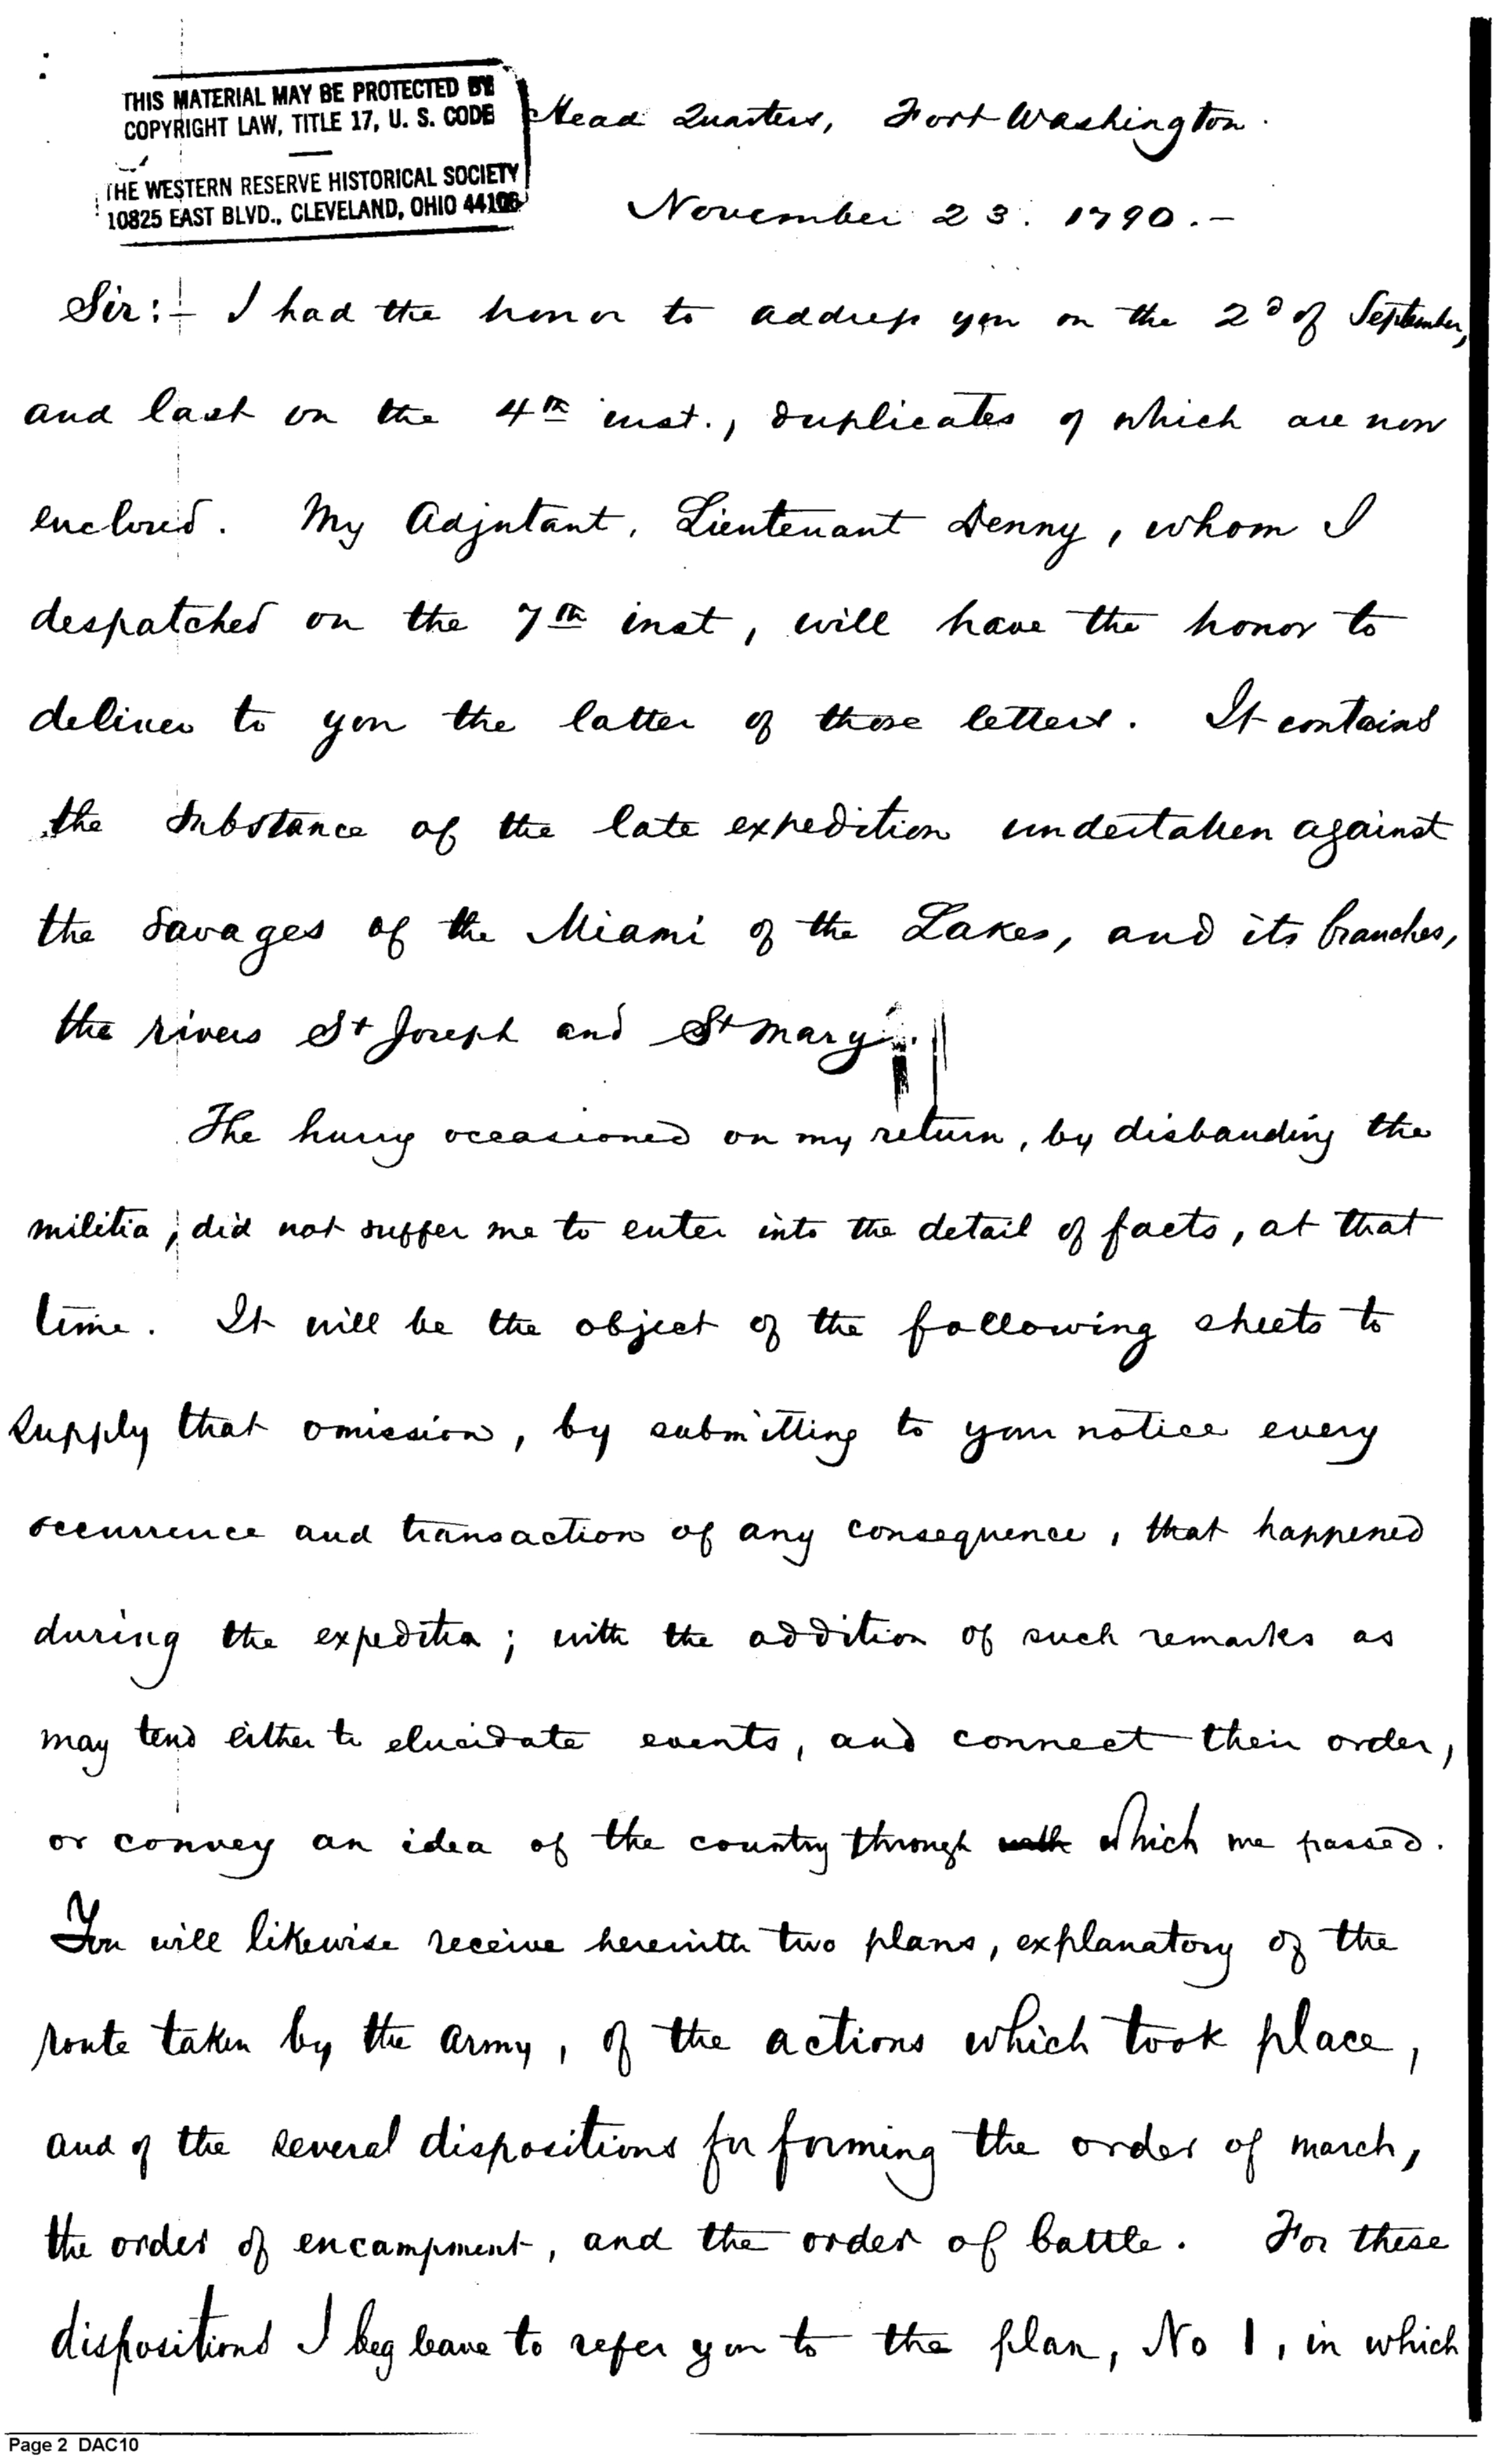 THIS MATERIAL MAY BE PROTECTED BY
COPYRIGHT LAW, TITLE 17, U. S. CODE
THE WESTERN RESERVE HISTORICAL SOCIETY
10825 EAST BLVD., CLEVELAND, OHIO 44106
Head Quarters, Fort Washington.
November 23. 1790.-
Sir:- I had the honor to address you on the 2d of September,
and last on the 4th inst., duplicates of which are now
enclosed. My Adjutant, Lieutenant Denny, whom I
despatched on the 7th inst, will have the honor to
deliver to you the latter of those letters. It contains
the substance of the late expedition undertaken against
the savages of the Miami of the Lakes, and its branches,
the rivers St Joseph and St Mary.
The hurry occasioned on my return, by disbanding the
militia, did not suffer me to enter into the detail of facts, at that
time. It will be the object of the following sheets to
supply that omission, by submitting to your notice every
occurrence and transaction of any consequence, that happened
during the expedition; with the addition of such remarks as
may tend either to elucidate events, and connect their order,
or convey an idea of the country through which we passed.
You will likewise receive herewith two plans, explanatory of the
route taken by the army, of the actions which took place,
and of the several dispositions for forming the order of march,
the order of encampment, and the order of battle. For these
dispositions I beg leave to refer you to the plan, No 1, in which
Page 2 DAC10